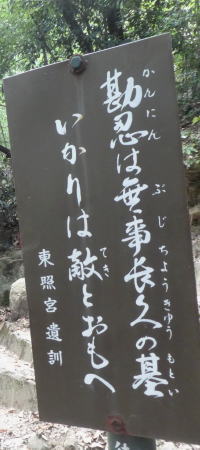 かんにん ぶじちようきゆう もとい
勘忍は無事長久の基
てき
いかりは敵とおもへ
東照宮遺訓